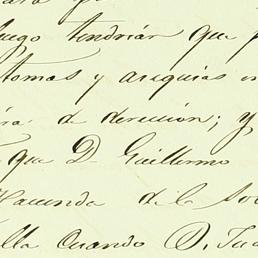 luego tendrian que p
tomas y asequias en
de dereccion; y
que D. Guillermo
Hacienda de la So
lla Cuando D. Jua